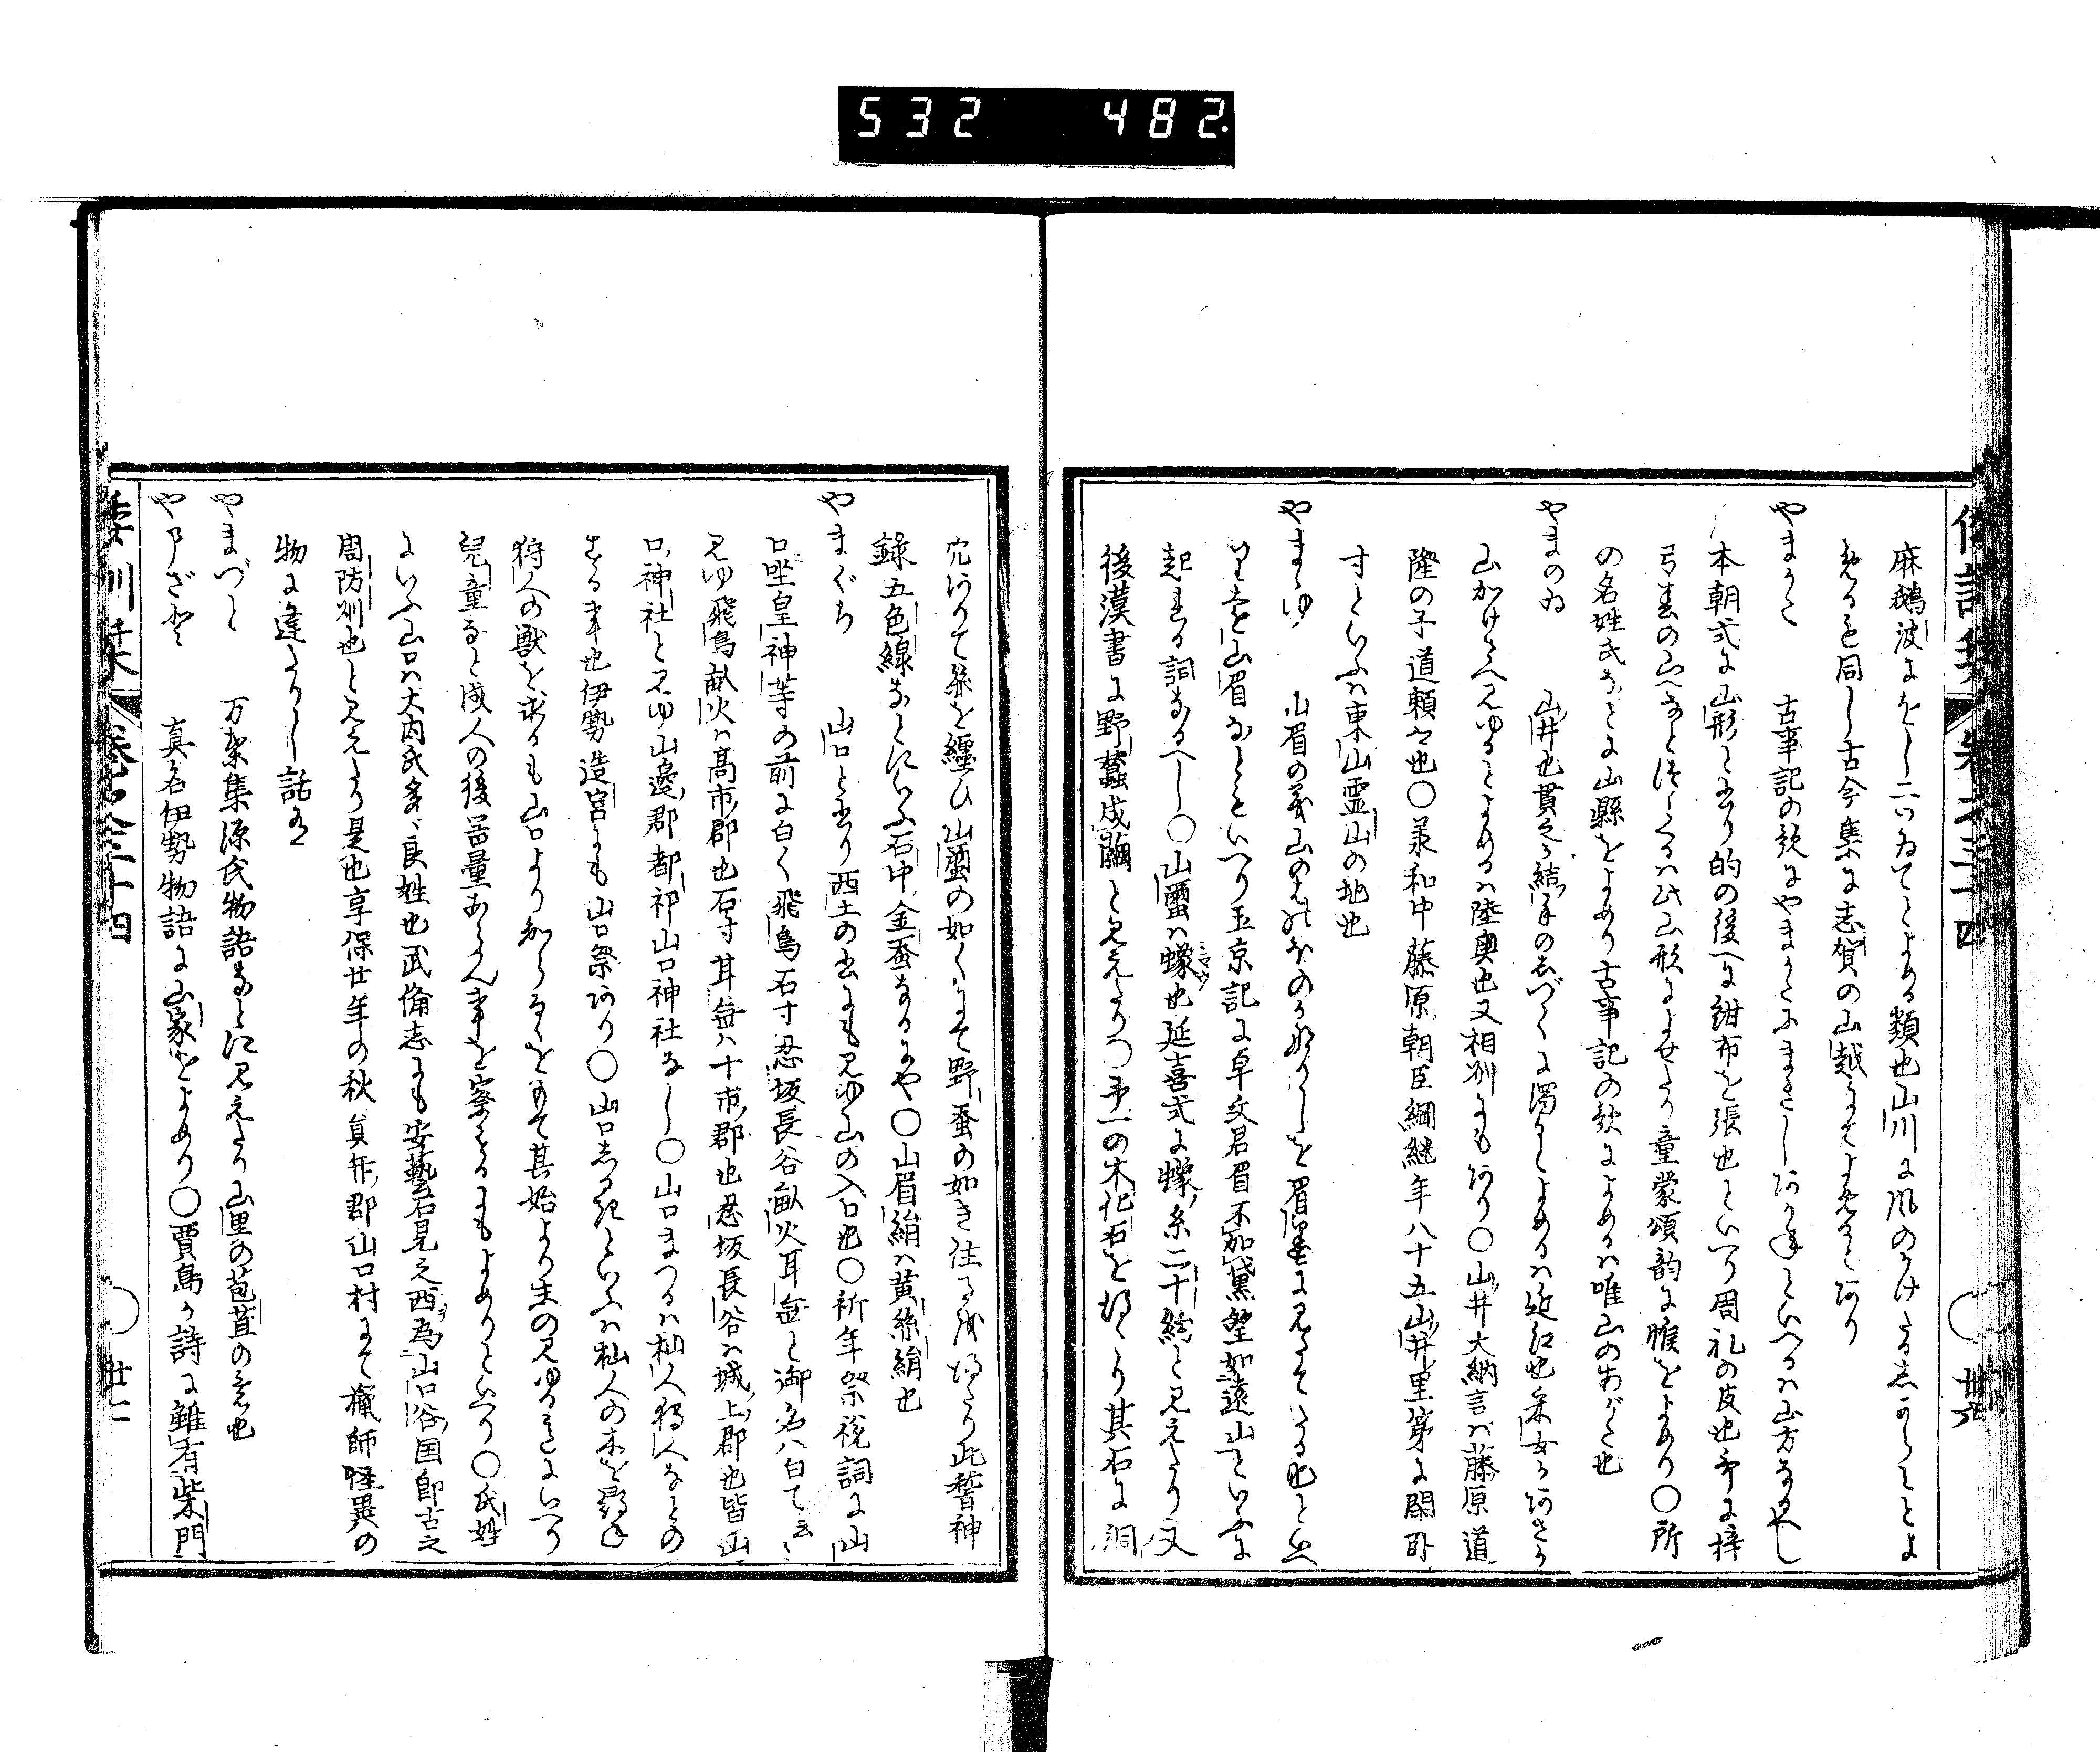 532 482.
麻鵝波よをし二りゐてとよめる類也山川に風のかけたるしからみとよ
めるも同し古今集に志賀の山越にてよめるとあり
やまかた 古事記の歌にやまかたにまきしあをなといへるは山方なるへし
本朝式に山形と書り的の後へに紺布を張也といへり周礼の皮也
弓 春の山へなと 此山形によせたり童蒙頌韵に帿をよめり〇所
の名姓氏なとに山縣をよめり古事記の歌によめるは唯山のあがた也
やまのゐ 山井也貫之か結ふ手のしづくに濁るとよめるは近江也采女かあさか
山かけさへみゆるとよめるは陸奥也又相州にもあり〇山ノ井大納言は藤原道
隆の子道頼公也〇承和中藤原朝臣綱継年八十五山井里第に閑臥
すといふは東山霊山の地也
やままゆ 山眉の義山の 眉墨に見たてたる也といへ
り 山眉なともいへり玉京記に卓文君眉不加黛望如遠山といふに
起れる詞なるへし〇山蠒は蠓也延喜式に蠓ノ糸二十絇と見えたり又
後漢書に野蠶成繭と見えたり〇 一の木化石を得たり其石に洞
穴ありて絲を纏ひ山蠒の如くにて野蚕の如き 得たり此稽神
録五色線なとにいふ石中ノ金蚕なるにや〇山眉絹は黄絲絹也
やまぐち 山口と書り西土の書にも見ゆ山の入口也〇祈年祭祝詞に山
口坐皇神等の前に白く飛鳥石寸忍坂長谷畝火耳無と御名八白て云々
見ゆ飛鳥畝火は高市ノ郡也石寸耳無は十市ノ郡也忍坂長谷は城ノ上ノ郡也皆山
口ノ神社と見ゆ山邊ノ郡都祁山口神社なし〇山口まつるは杣人狩人なとの
する事也伊勢造宮にも山口祭あり〇山口しるきといふは杣人の木を尋ね
狩人の獣を求るも山口より知らるゝをもて其始より末の見ゆる にいへり
兒童なと成人の後器量あらん事を察するにもよめりといへり〇氏姓
にいふ山口は大内氏多々良姓也武備志にも安藝石見之西ヲ為山口谷ノ国即古之
周防州也と見えたり是也享保廿年の秋員弁ノ郡山口村にて獵師怪異の
物に逢たりし話有
やまづと 万葉集源氏物語なとに見えたり山里の苞苴の意也
やまざと 真名伊勢物語に山家をよめり〇賈島か詩に雖有柴門
倭訓栞 巻之三十四 〇廿七